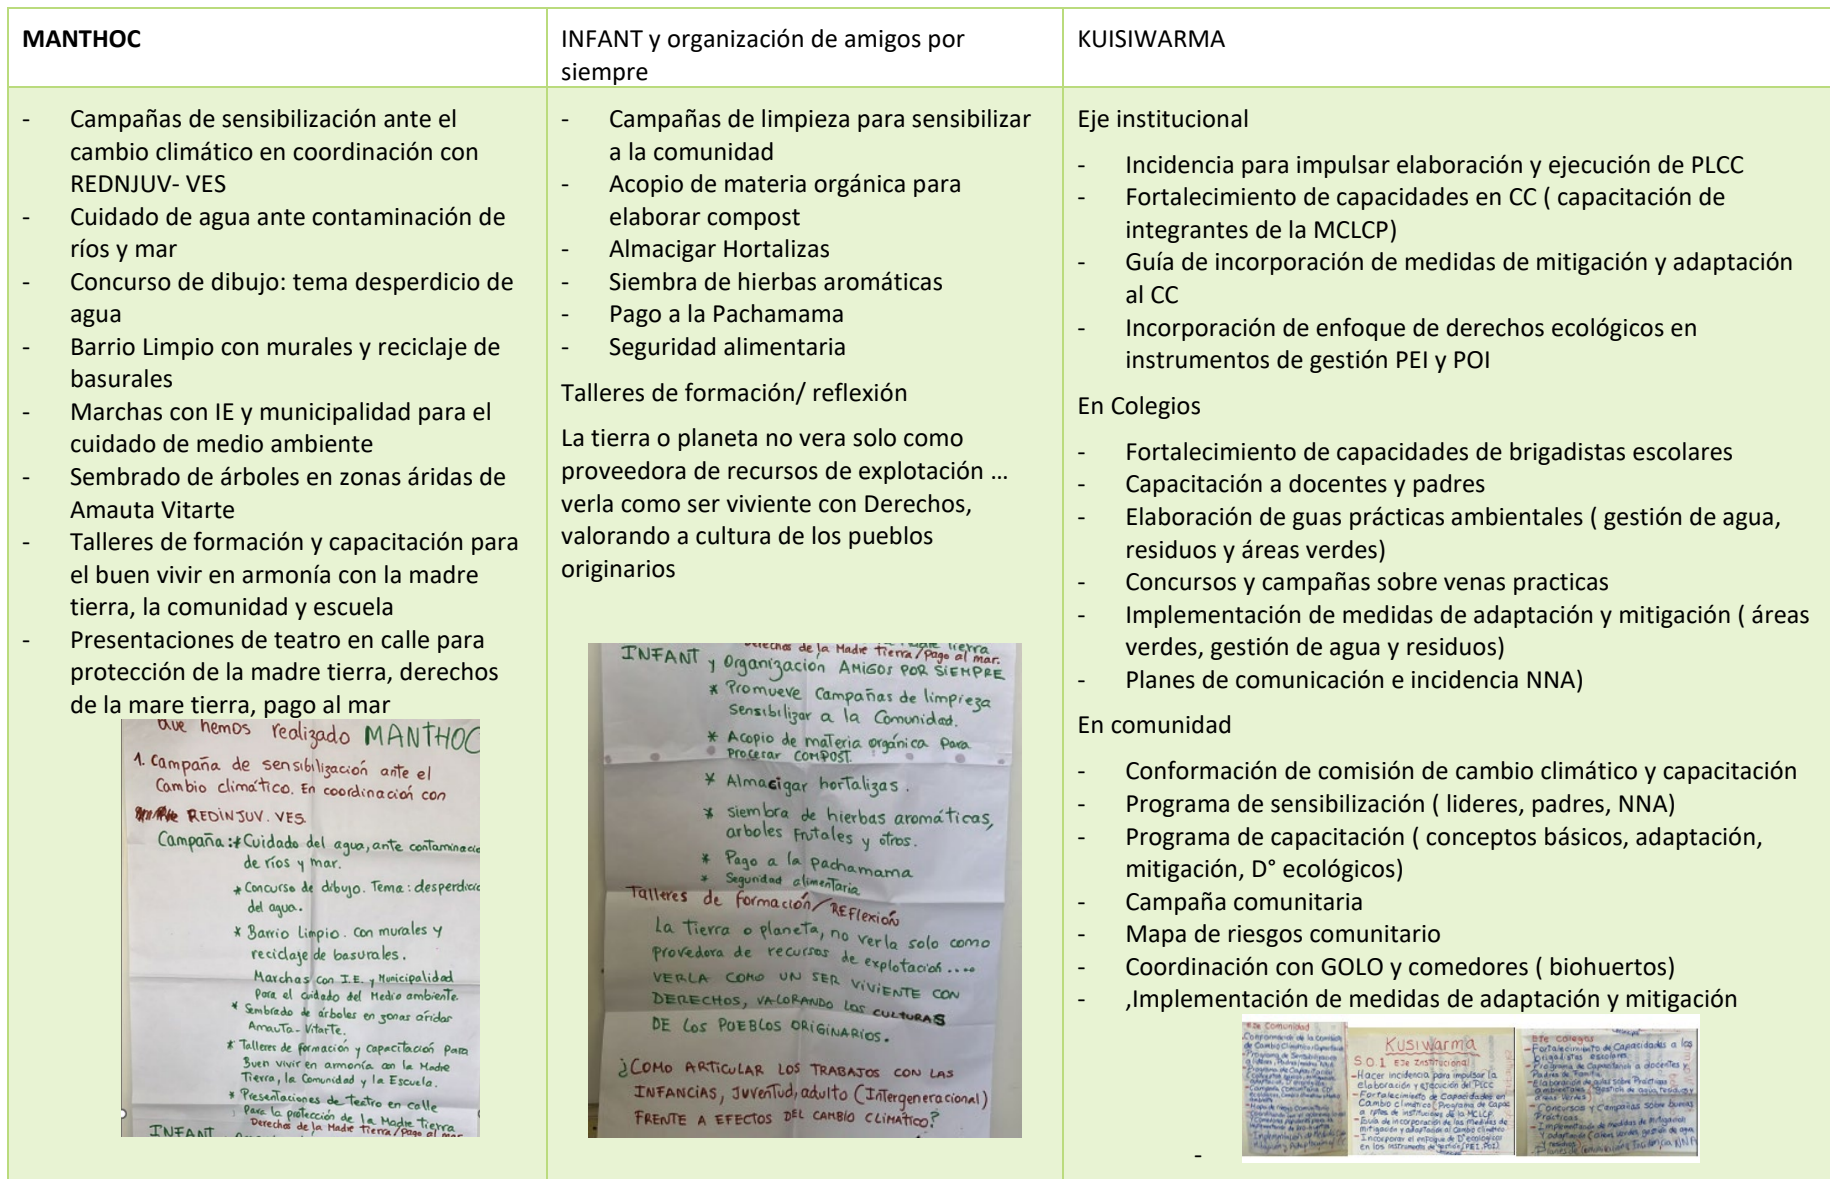 MANTHOC
- Campañas de sensibilización ante el
cambio climático en coordinación con
REDNJUV- VES
- Cuidado de agua ante contaminación de
ríos y mar
- Concurso de dibujo: tema desperdicio de
agua
- Barrio Limpio con murales y reciclaje de
basurales
- Marchas con IE y municipalidad para el
cuidado de medio ambiente
- Sembrado de árboles en zonas áridas de
Amauta Vitarte
- Talleres de formación y capacitación para
el buen vivir en armonía con la madre
tierra, la comunidad y escuela
- Presentaciones de teatro en calle para
protección de la madre tierra, derechos
de la mare tierra, pago al mar
que hemos realizado MANTHOC
1. Campaña de sensibilización ante el
Cambio climático. En coordinación con
REDINJUV. VES
Campaña: * Cuidado del agua, ante contaminació
de ríos y mar.
* Concurso de dibujo. Tema: desperdicio
del agua.
* Barrio Limpio. con murales y
reciclaje de basurales.
Marchas con I.E. y Municipalidad
Para el cuidado del Medio ambiente.
* Sembrado de árboles en zonas áridas
Amauta-Vitarte.
* Talleres de formación y capacitación para
Buen vivir en armonía con la Madre
Tierra, la Comunidad y la Escuela.
* Presentaciones de Teatro en calle
Para la protección de la Madre Tierra
Derechos de la Madre Tierra/Pago al mar.
INFANT
INFANT y organización de amigos por
siempre
- Campañas de limpieza para sensibilizar
a la comunidad
- Acopio de materia orgánica para
elaborar compost
- Almacigar Hortalizas
- Siembra de hierbas aromáticas
- Pago a la Pachamama
- Seguridad alimentaria
Talleres de formación/ reflexión
La tierra o planeta no vera solo como
proveedora de recursos de explotación …
verla como ser viviente con Derechos,
valorando a cultura de los pueblos
originarios
Derechos de la Madre Tierra/Pago al mar.
INFANT y Organización AMIGOS POR SIEMPRE
* Promueve Campañas de limpieza
Sensibilizar a la Comunidad.
* Acopio de materia orgánica para
Procesar COMPOST.
* Almacigar hortalizas.
* Siembra de hierbas aromáticas,
arboles frutales y otros.
* Pago a la pachamama
* Seguridad alimentaria
Talleres de formación/REFlexión
La Tierra o planeta, no verla solo como
provedora de recursos de explotación....
VERLA COMO UN SER VIVIENTE CON
DERECHOS, VALORANDO LAS CULTURAS
DE LOS PUEBLOS ORIGINARIOS.
¿COMO ARTICULAR LOS TRABAJOS CON LAS
INFANCIAS, JUVENTUD, adulto (Intergeneracional)
FRENTE A EFECTOS DEL CAMBIO CLIMÁTICO?
KUISIWARMA
Eje institucional
- Incidencia para impulsar elaboración y ejecución de PLCC
- Fortalecimiento de capacidades en CC ( capacitación de
integrantes de la MCLCP)
- Guía de incorporación de medidas de mitigación y adaptación
al CC
- Incorporación de enfoque de derechos ecológicos en
instrumentos de gestión PEI y POI
En Colegios
- Fortalecimiento de capacidades de brigadistas escolares
- Capacitación a docentes y padres
- Elaboración de guas prácticas ambientales ( gestión de agua,
residuos y áreas verdes)
- Concursos y campañas sobre venas practicas
- Implementación de medidas de adaptación y mitigación ( áreas
verdes, gestión de agua y residuos)
- Planes de comunicación e incidencia NNA)
En comunidad
- Conformación de comisión de cambio climático y capacitación
- Programa de sensibilización ( lideres, padres, NNA)
- Programa de capacitación ( conceptos básicos, adaptación,
mitigación, D° ecológicos)
- Campaña comunitaria
- Mapa de riesgos comunitario
- Coordinación con GOLO y comedores ( biohuertos)
- ,Implementación de medidas de adaptación y mitigación
-
Eje Comunidad
Kusiwarma
S.O.1 Eje Institucional
- Hacer incidencia para impulsar la
elaboración y ejecución del PLCC
- Fortalecimiento de Capacidades en
Cambio climático (Programa de Capac
a rptes de instituciones de la MCLCP
- Guía de incorporación de las medidas de
mitigación y adaptación al Cambio Climático
- Incorporar el enfoque de D° ecológicos
en los instrumentos de gestión (PEI, POI)
Eje Colegios
- Fortalecimiento de Capacidades a los
brigadistas escolares
- Programa de Capacitación a docentes y
Padres de Familia
- Concursos y Campañas sobre buenas
Prácticas
- Implementación de medidas de mitigación